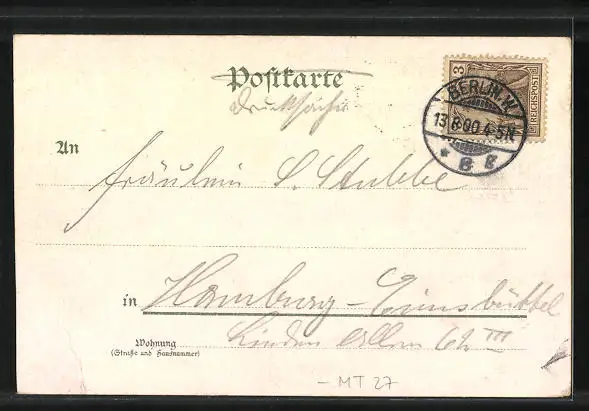 Postkarte
Drucksache
3
REICHSPOST
BERLIN, W.
13.8.00.4-5N
* 8 g
An
Fräulein S. Stubbe
in Hamburg-Eimsbüttel
Wohnung
(Straße und Hausnummer)
Linden Allee 62 III
- MT 27